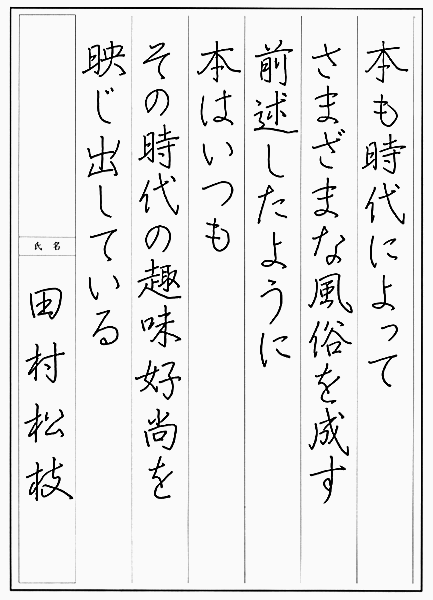 本も時代によって
さまざまな風俗を成す
前述したように
本はいつも
その時代の趣味好尚を
映じ出している
氏名
田村松枝